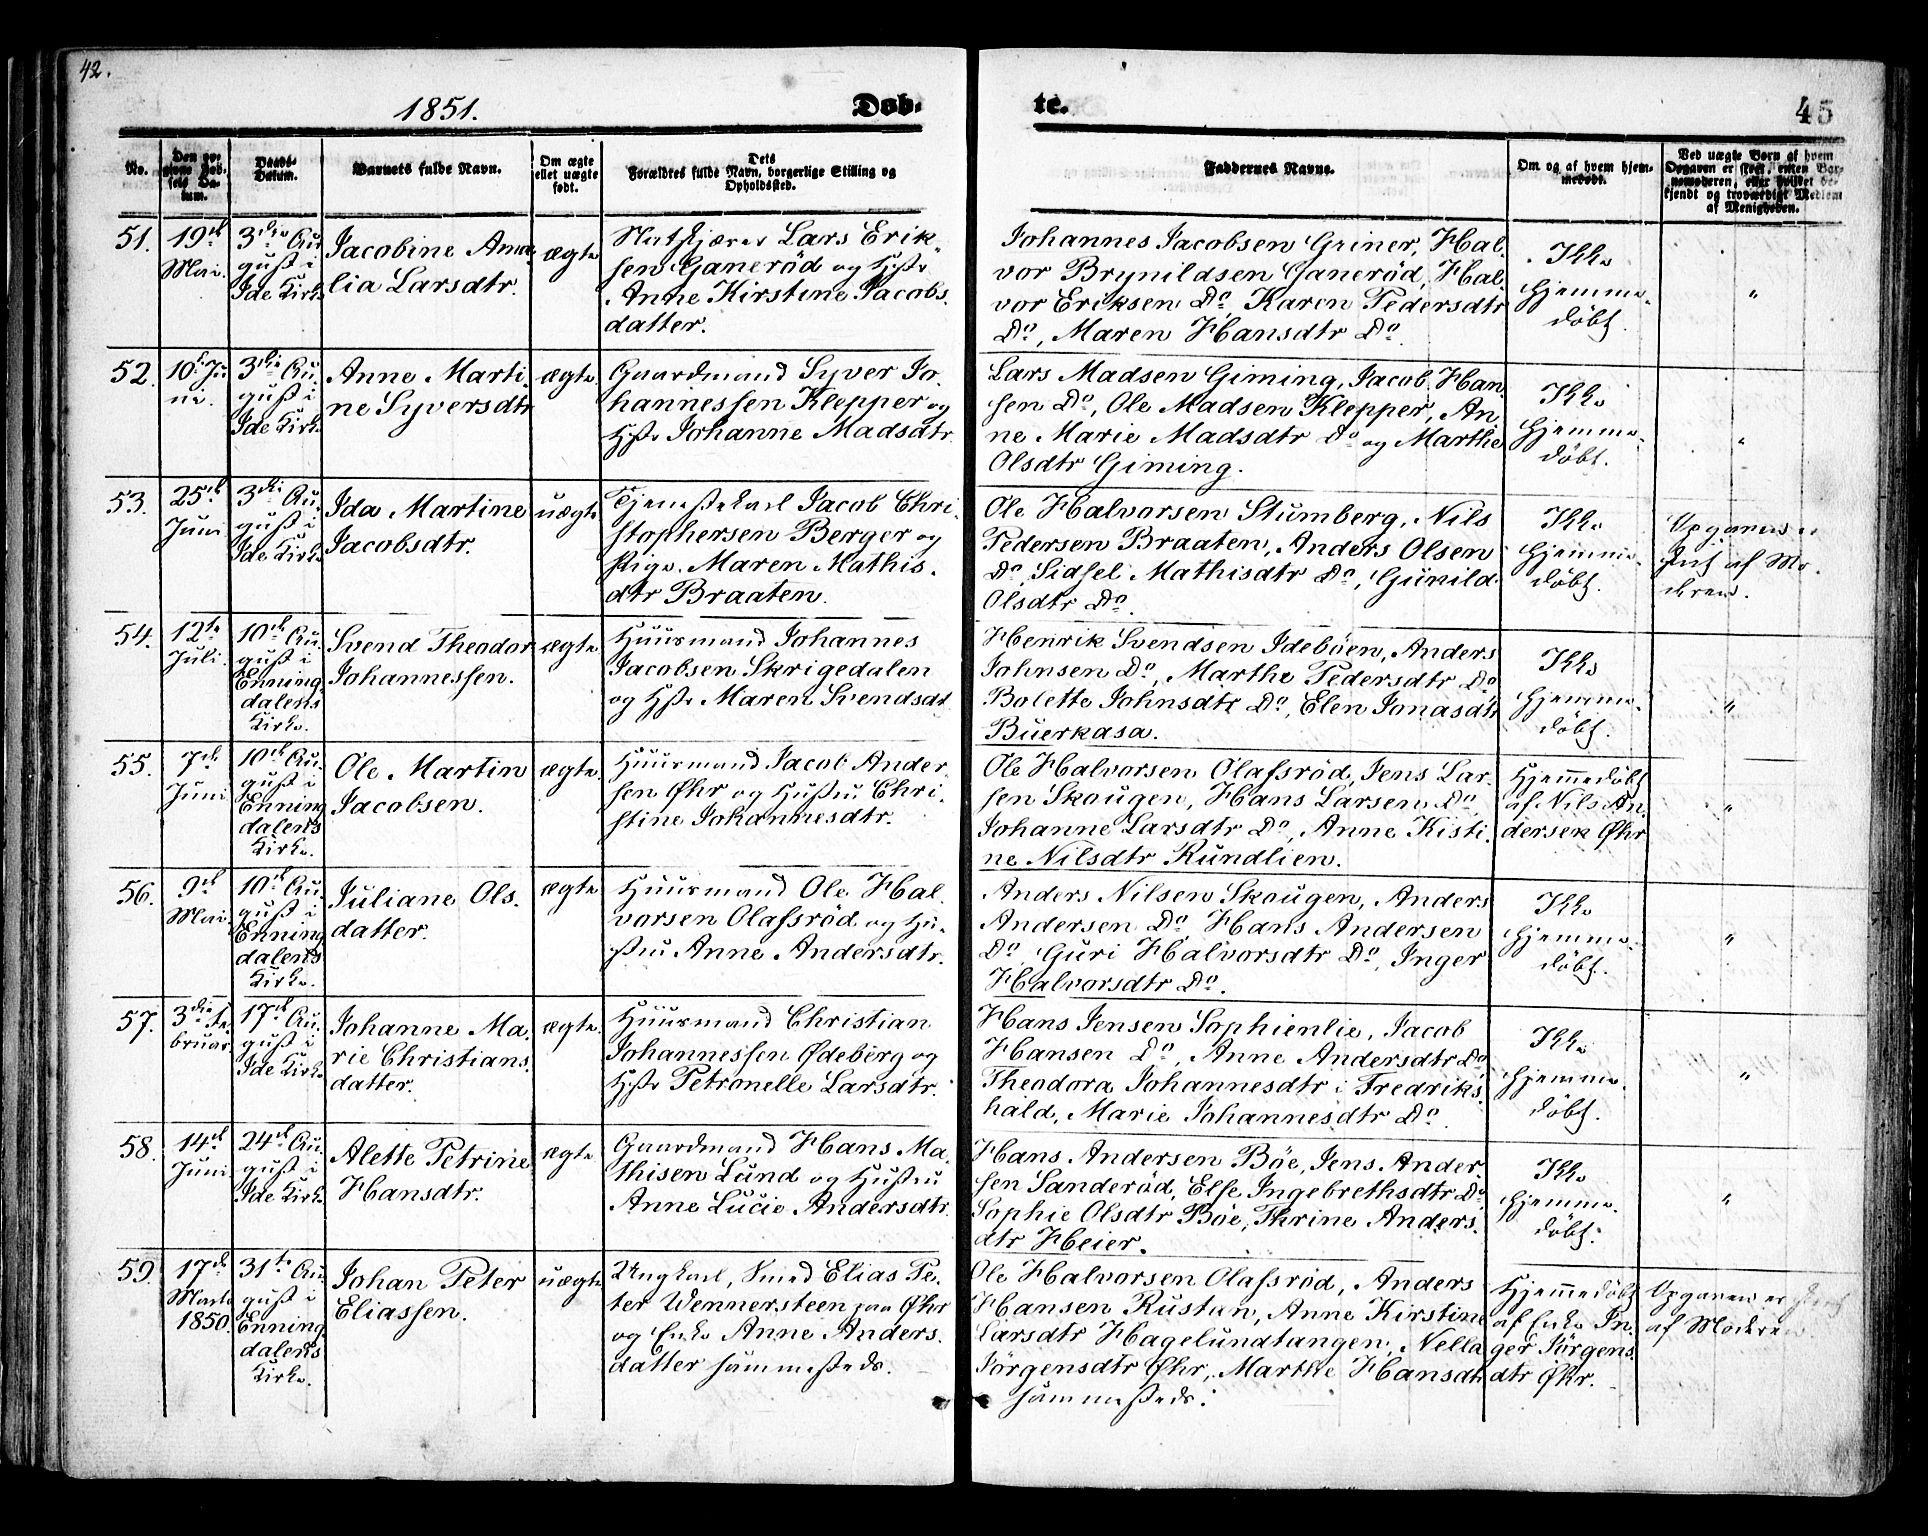 42.
1851.
Døb-
te.
45
No.
Den op-
givne Fød-
sels Da-
tum.
Daabs-
Datum.
Barnets fulde Navn.
Om ægte
ellet uægte
født.
Dets
Forældres fulde Navn, borgerlige Stilling og
Opholdssted.
Faddernes Navne.
Om og af hvem hjem-
medøbt.
Ved uægte Børn af hvem
Opgaven er skeet, enten Bar-
nemoderen, eller hvilket be-
kjendt og troværdigt Medlem
af Menigheden.
51.
19de
Mai.
3die Au
gust i
Ide Kirke
Jacobine Ama-
lia Larsdtr.
ægte
Lars Erik-
sen Ganerød og Hstr
Anne Kirstine Jacobs-
datter.
Johannes Jacobsen Griner, Hal-
vor Brynildsen Ganerød, Hal-
vor Eriksen Do, Karen Pedersdtr
Do, Maren Hansdtr Do.
Ikke
hjemme-
døbt.
"
52.
10de Ju-
ni.
3die Au-
gust i
Ide Kirke
Anne Marti-
ne Syversdtr
ægte.
Gaardmand Syver Jo-
hannessen Klepper og
Hstr Johanne Madsdtr.
Lars Madsen Giming, Jacob Han-
sen Do, Ole Madsen Klepper, An-
ne Marie Madsdtr Do og Marthe
Olsdtr Giming.
Ikke
hjemme-
døbt.
"
53.
25de
Juni
3die Au-
gust i
Ide Kirke
Ida Martine
Jacobsdtr.
uægte
Tjenestekarl Jacob Chri-
stophersen Berger og
Pige Maren Mathis-
dtr Braaten.
Ole Halvorsen Stumberg, Nils
Pedersen Braaten, Anders Olsen
Do, Sidsel Mathisdtr Do, Gunild
Olsdtr Do.
Ikke
hjemme-
døbt.
Opgaven er
skeet af Mo-
deren.
54.
12te
Juli.
10de Au-
gust i
Enning
dalens
Kirke.
Svend Theodor
Johannessen.
ægte
Huusmand Johannes
Jacobsen Skrigedalen
og Hstr Maren Svendsdt
Henrik Svendsen Idebøen, Anders
Johnsen Do, Marthe Pedersdtr Do
Bolette Johnsdtr Do, Elen Jonasdtr
Buerkasa.
Ikke
hjemme-
døbt.
"
55.
7de
Juni
10de Au-
gust i
Enning
dalens
Kirke.
Ole Martin
Jacobsen.
ægte.
Huusmand Jacob Ander-
sen Øhr og Hustru Chri-
stine Johannesdtr.
Ole Halvorsen Olafsrød, Jens Lar-
sen Skougen, Hans Larsen Do
Johanne Larsdtr Do, Anne Kisti-
ne Nilsdtr Rundlien.
Hjemmedøbt
af Nils An-
dersen Øhr
"
56.
9de
Mai
10de Au-
gust i
Enning
dalens
Kirke.
Juliane Ols-
datter.
ægte
Huusmand Ole Hal-
vorsen Olafsrød og Hu-
stru Anne Andersdtr.
Anders Nilsen Skougen, Anders
Andersen Do, Hans Andersen
Do, Guri Halvorsdtr Do, Inger
Halvorsdtr Do.
Ikke
hjemme-
døbt.
"
57.
3die Fe-
bruar
17de Au-
gust i
Ide Kirke
Johanne Ma-
rie Christians-
datter.
ægte.
Huusmand Christian
Johannessen Ødeberg og
Hstr Petronelle Larsdtr.
Hans Jensen Sophienlie, Jacob
Hansen Do, Anne Andersdtr Do
Theodora Johannesdtr i Fredriks-
hald, Marie Johannesdtr Do.
Ikke
hjemme-
døbt.
"
58.
14de
Juni
24de Au-
gust i
Ide Kirke
Alette Petrine
Hansdtr.
ægte
Gaardmand Hans Ma-
thisen Lund og Hustru
Anne Lucie Andersdtr.
Hans Andersen Bøe, Jens Ander-
sen Sanderød, Else Ingebrethsdtr Do
Sophie Olsdtr Bøe, Thrine Anders-
dtr Heier.
Ikke
hjemme-
døbt.
"
59.
17de
Marts
1850.
31te Au-
gust i
Enning
dalens
Kirke.
Johan Peter
Eliassen.
uægte
Ungkarl, Smed Elias Pe-
ter Wennersteen paa Øhr
og Enke Anne Anders-
datter sammesteds.
Ole Halvorsen Olafsrød, Anders
Hansen Rustan, Anne Kirstine
Larsdtr Hagelundtangen, Nella
Jørgensdtr Øhr, Marthe Hansdt
sammesteds.
Hjemmedøbt
af Enke In-
ger Jørgens-
dtr Øhr.
Opgaven er skeet
af Moderen.